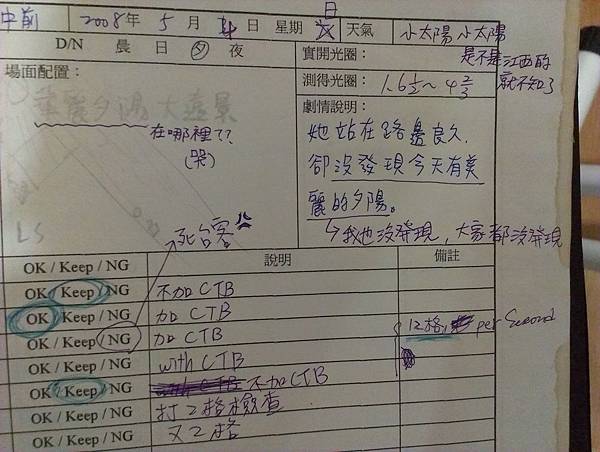 中前 2008年 5月 4日 星期日 天氣 小太陽 小太陽
是不是江西的
就不知了
D/N 晨 日 夕 夜
實開光圈：
測得光圈： 1.6 1/2～4 2/3
場面配置：
華麗夕陽大遠景
在哪裡??
(哭)
LS
劇情說明：
她站在路邊良久,
卻沒發現今天有美
麗的夕陽。
↳我也沒發現，大家都沒發現
死台客
說明 備註
OK / Keep / NG
OK / Keep / NG 不加 CTB
OK / Keep / NG 加 CTB
OK / Keep / NG 加 CTB
12格, per Second
OK / Keep / NG with CTB
OK / Keep / NG with CTB 不加CTB
OK / Keep / NG 打2格檢查
OK / Keep / NG 又2格